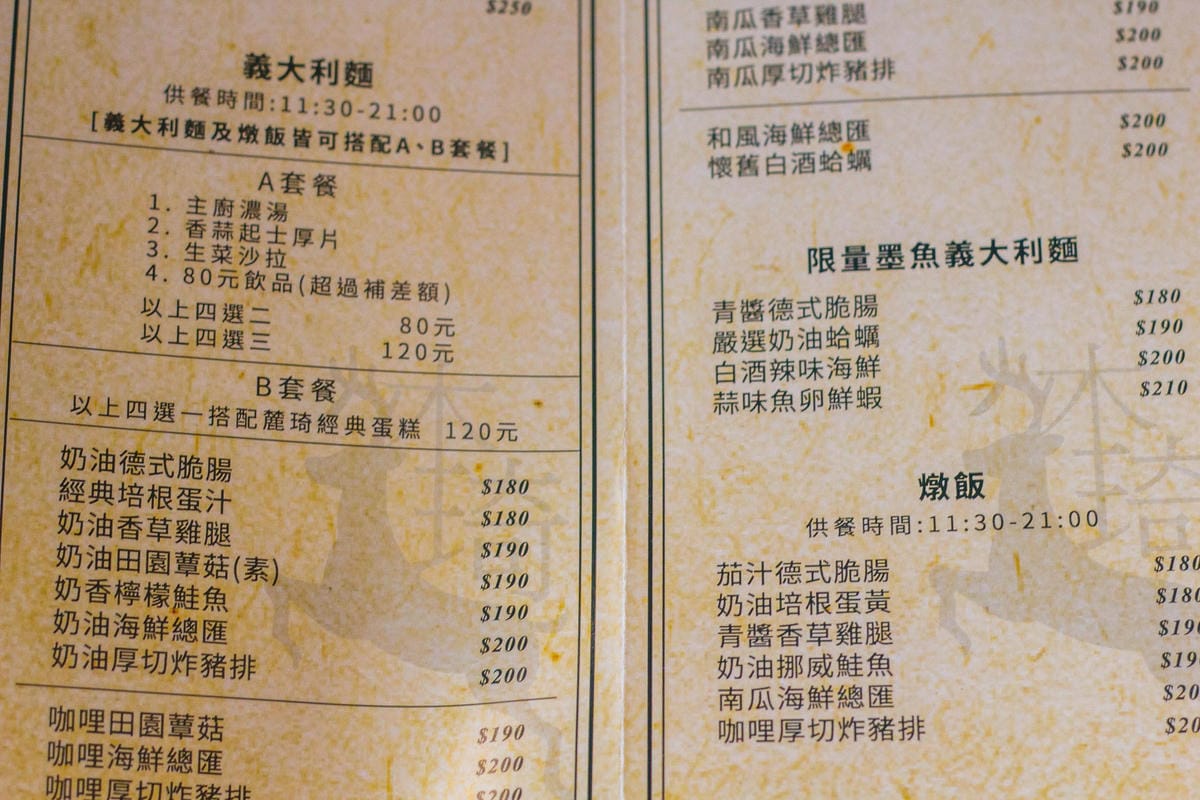 $250
義大利麵
供餐時間:11:30-21:00
[義大利麵及燉飯皆可搭配A、B套餐]
A套餐
1. 主廚濃湯
2. 香蒜起士厚片
3. 生菜沙拉
4. 80元飲品(超過補差額)
以上四選二 80元
以上四選三 120元
B套餐
以上四選一搭配麓琦經典蛋糕 120元
奶油德式脆腸 $180
經典培根蛋汁 $180
奶油香草雞腿 $190
奶油田園蕈菇(素) $190
奶香檸檬鮭魚 $190
奶油海鮮總匯 $200
奶油厚切炸豬排 $200
咖哩田園蕈菇 $190
咖哩海鮮總匯 $200
咖哩厚切炸豬排 $200
南瓜香草雞腿 $190
南瓜海鮮總匯 $200
南瓜厚切炸豬排 $200
和風海鮮總匯 $200
懷舊白酒蛤蠣 $200
限量墨魚義大利麵
青醬德式脆腸 $180
嚴選奶油蛤蠣 $190
白酒辣味海鮮 $200
蒜味魚卵鮮蝦 $210
燉飯
供餐時間:11:30-21:00
茄汁德式脆腸 $180
奶油培根蛋黃 $180
青醬香草雞腿 $190
奶油挪威鮭魚 $190
南瓜海鮮總匯 $20
咖哩厚切炸豬排 $20